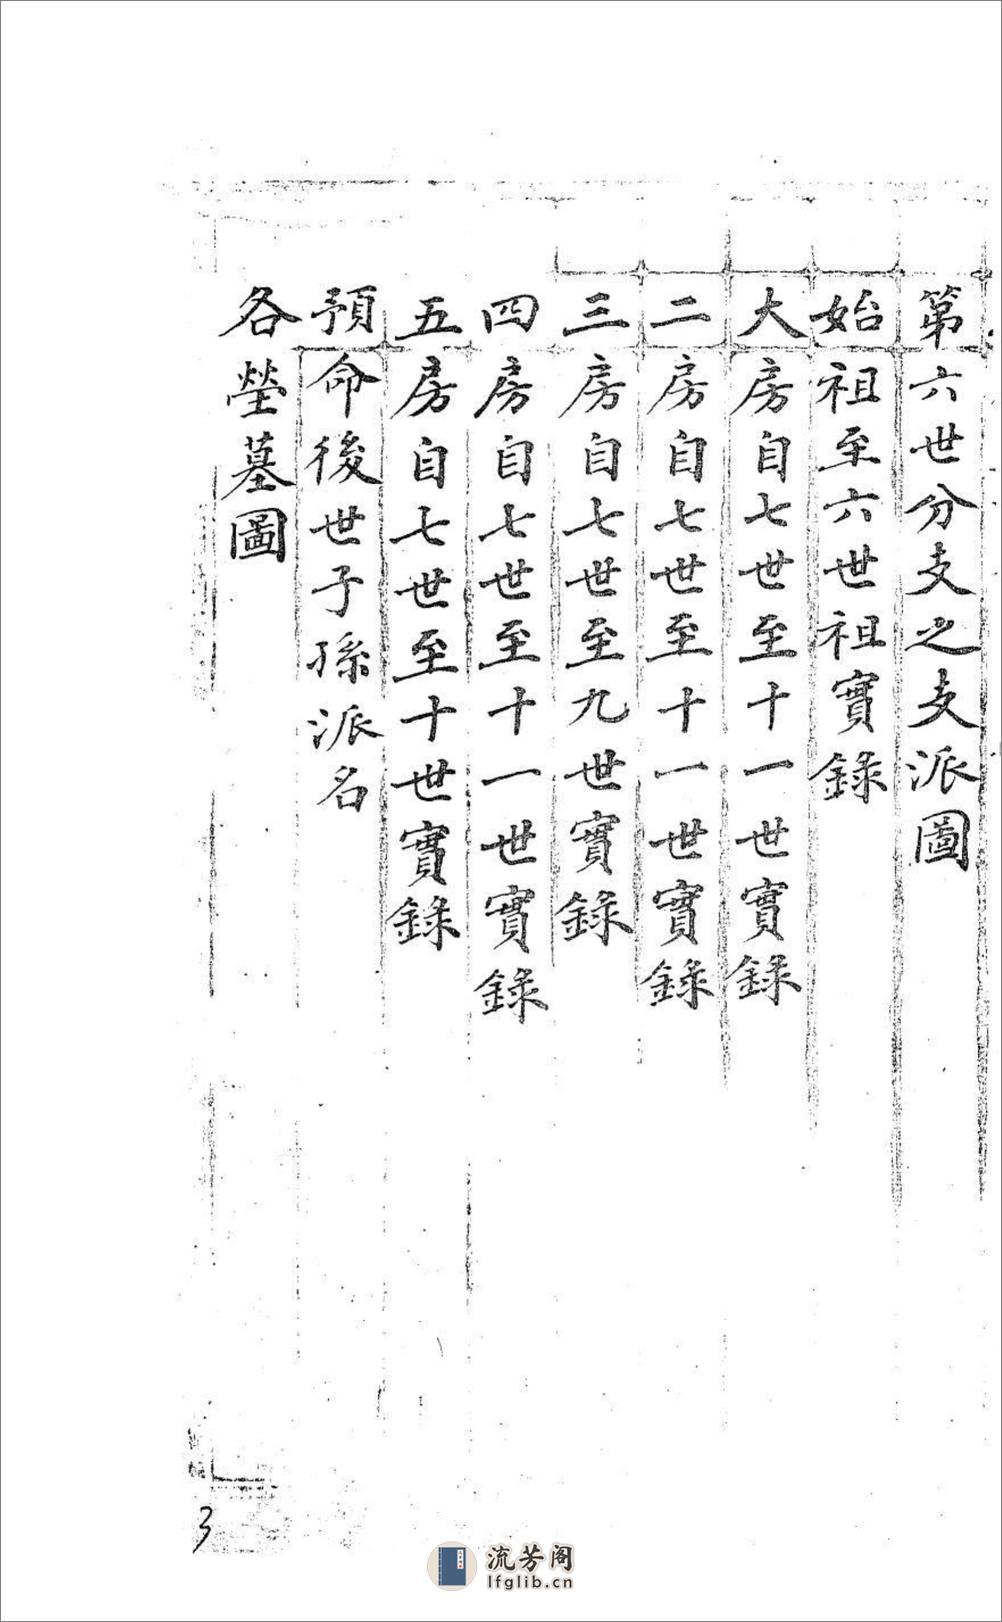 第六世分支之支派圖
始祖至六世祖實錄
大房自七世至十一世實錄
二房自七世至十一世實錄
三房自七世至九世實錄
四房自七世至十一世實錄
五房自七世至十世實錄
預命後世子孫派名
各塋墓圖
3
流芳阁
lfglib.cn